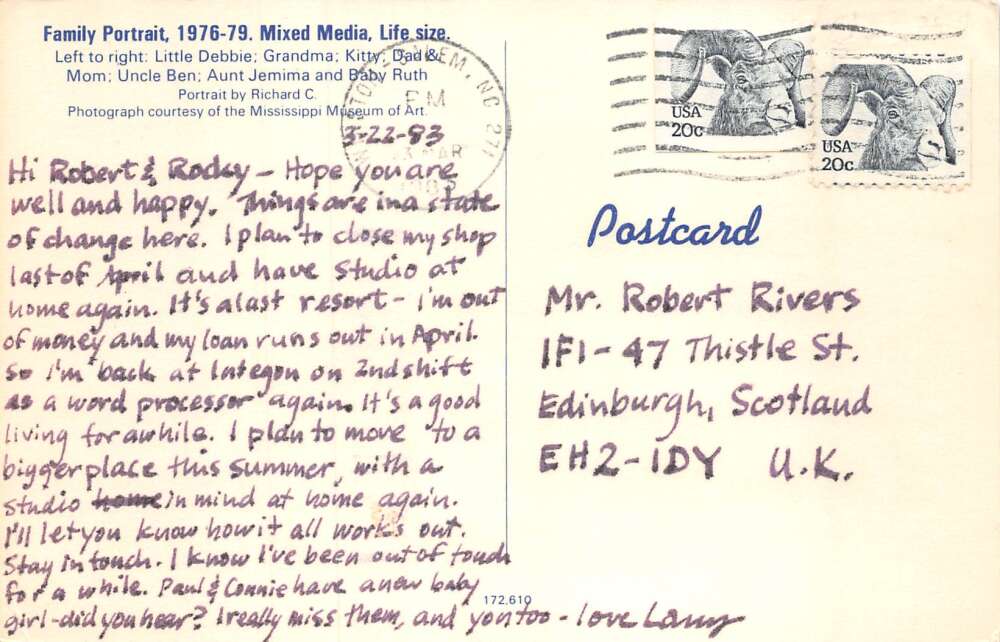 Family Portrait, 1976-79. Mixed Media, Life size.
Left to right: Little Debbie; Grandma; Kitty; Dad &
Mom; Uncle Ben; Aunt Jemima and Baby Ruth
Portrait by Richard C.
Photograph courtesy of the Mississippi Museum of Art.
3-22-83
Hi Robert & Rodey – Hope you are
well and happy. Things are in a state
of change here. I plan to close my shop
last of April and have studio at
home again. It's a last resort – I'm out
of money and my loan runs out in April.
So I'm back at Integon on 2nd shift
as a word processor again. It's a good
living for awhile. I plan to move to a
bigger place this summer, with a
studio in mind at home again.
I'll let you know how it all works out.
Stay in touch. I know I've been out of touch
for a while. Paul & Connie have a new baby
girl - did you hear? I really miss them, and you too - love Larry
172.610
PM
MAR
NC 271
USA
20c
USA
20c
Postcard
Mr. Robert Rivers
1F1-47 Thistle St.
Edinburgh, Scotland
EH2-1DY U.K.